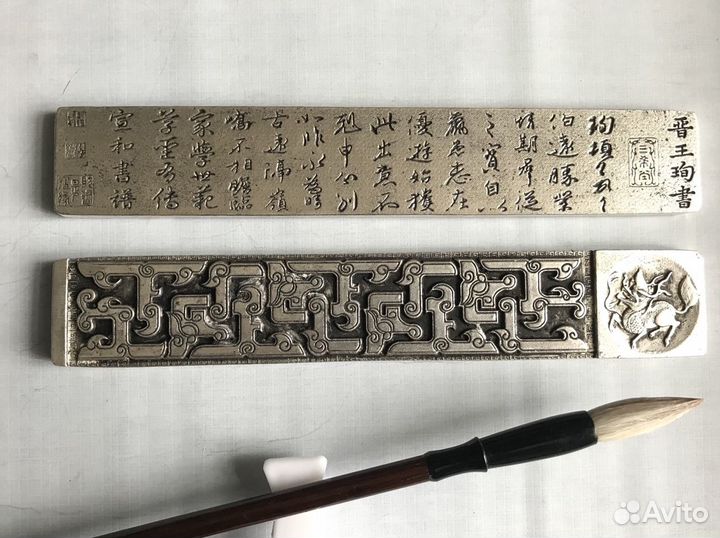 晋王珣書
三希堂
珣頓首頓首
伯遠勝業
情期群從
之寶自以
羸患志在
優遊始獲
此出意不
剋申分別
如昨永為疇
古遠隔嶺
嶠不相瞻臨
家學世範
草聖有傳
宣和書譜
Avito